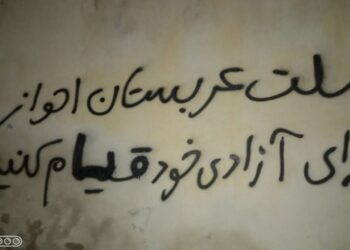 ملت عربستان احواز
برای آزادی خود قیام کنید